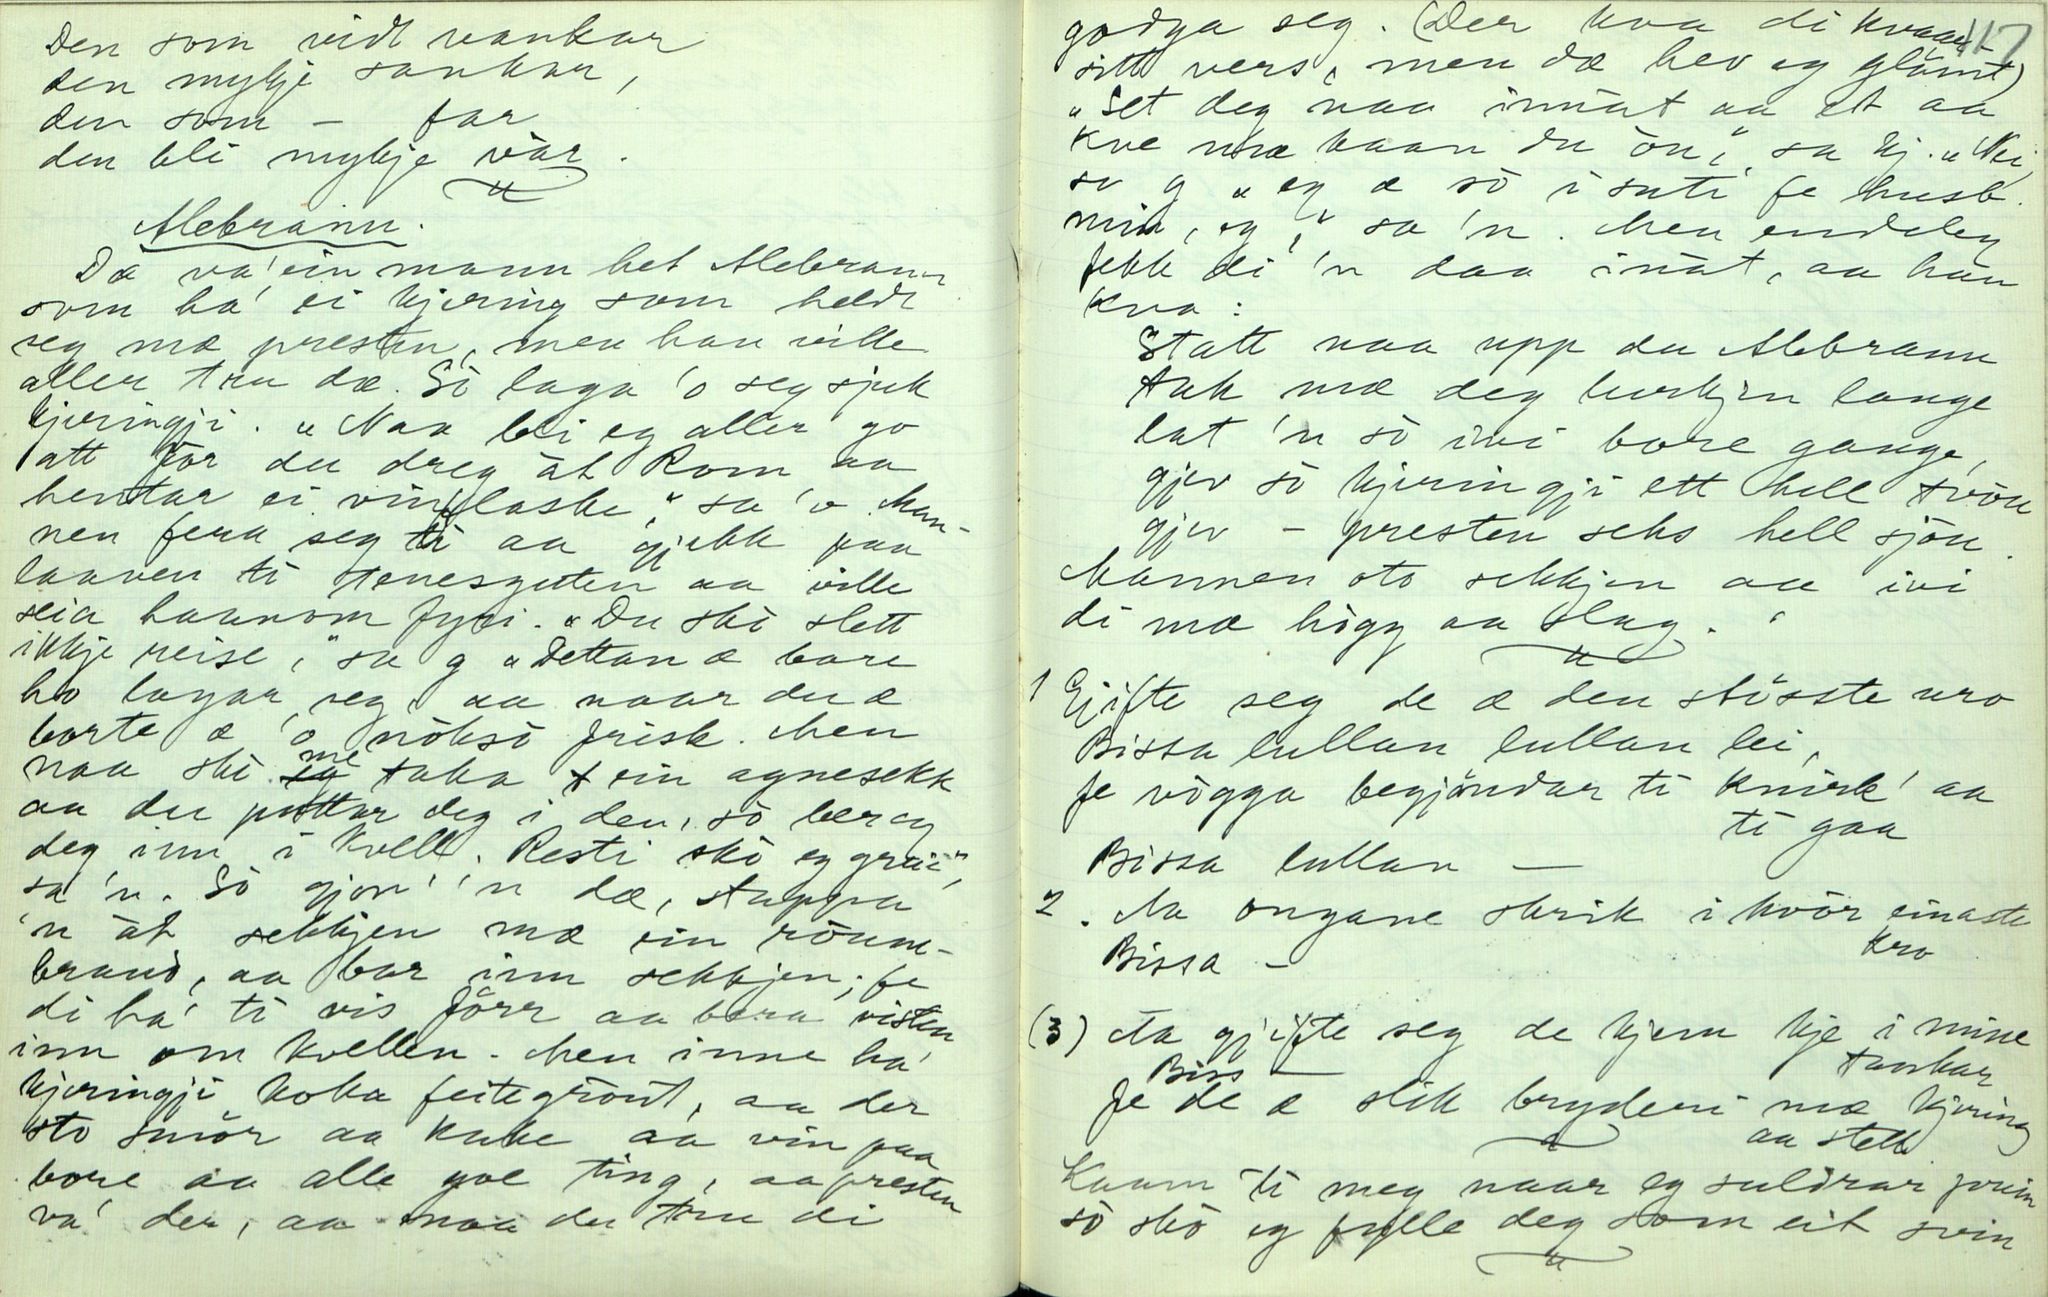 Den som vidt vankar
den mykje sankar,
den som – far
den bli mykje var.
Alebrann.
Dæ va' ein mann het Alebrann
som ha' ei kjering som heldt
seg mæ presten, men han ville
aller tru dæ. Sò laga 'o seg sjuk
kjeringji. "Naa bli eg aller go
attför du dreg åt Rom aa
hentar ei vinflaske," sa 'o. Man-
nen fera seg ti aa gjekk paa
laaven ti tenesguten aa ville
seia haanom fyri. "Du ski slett
ikkje reise," sa g "Dettan æ bare
ho lagar seg, aa naar du æ
borte æ 'o nòksò frisk. Men
naa ski me taka ein agnesekk
aa du puttar deg i den, sò ber eg
deg inn i kvell. Resti skò eg greie",
sa 'n. Sò gjor' 'n dæ, stappa
'n åt sekkjen mæ ein rönne-
brand, aa bar inn sekkjen; fe
di ha' ti vis förr aa bera visten
inn om kvellen. Men inne ha'
kjeringji koka feitegraut, aa der
sto smör aa kake aa vin paa
bore aa alle goe ting, aa presten
va' der, aa naa du tru di
117
godga seg. (Der kva di kvaar
sitt vers, men dæ hev eg glömt)
"Set deg naa innåt aa et aa
kve mæ haan du òn", sa kj. "Nei,
sa g "eg æ sò i suti fe husb.
min, eg," sa 'n. Men endeleg
fekk di 'n daa innåt, aa han
kva:
Statt naa upp du Alebrann
tak mæ deg birkjen lange
lat 'n sò ivi bore gange,
gjev sò kjeringji ett hell tvòu
gjev – presten seks hell sjòu.
Mannen oto sekkjen aa ivi
di mæ hògg aa slag.
1 Gjifte seg de æ den stösste uro
Bissa lullan lullan lei,
fe vògga begjöndar ti knirk' aa
ti gaa
Bissa lullan —
2. Aa ongane skrik i kvör einaste
kro
Bissa –
(3) Aa gjifte seg de kjem kje i mine
tankar
Biss —
Fe de æ slik bryderi mæ kjering
aa stell
Kaam ti meg naar eg suldrar
sò skò eg fylle deg som eit svin